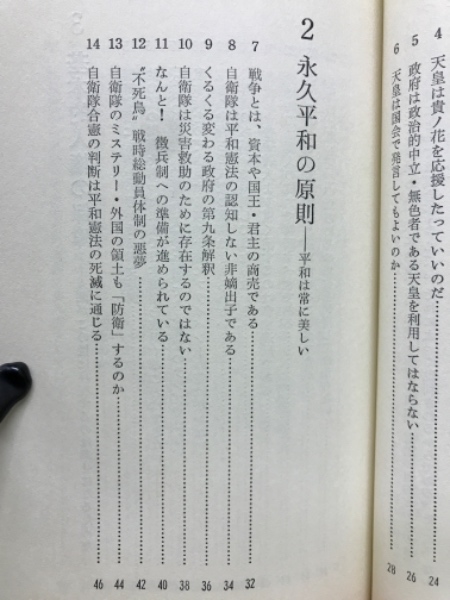 4 天皇は貴ノ花を応援したっていいのだ……24
5 政府は政治的中立・無色者である天皇を利用してはならない……26
6 天皇は国会で発言してもよいのか……28
2 永久平和の原則――平和は常に美しい
7 戦争とは、資本や国王・君主の商売である……32
8 自衛隊は平和憲法の認知しない非嫡出子である……34
9 くるくる変わる政府の第九条解釈……36
10 自衛隊は災害救助のために存在するのではない……38
11 なんと！ 徴兵制への準備が進められている……40
12 〝不死鳥〟戦時総動員体制の悪夢……42
13 自衛隊のミステリー・外国の領土も「防衛」するのか……44
14 自衛隊合憲の判断は平和憲法の死滅に通じる……46